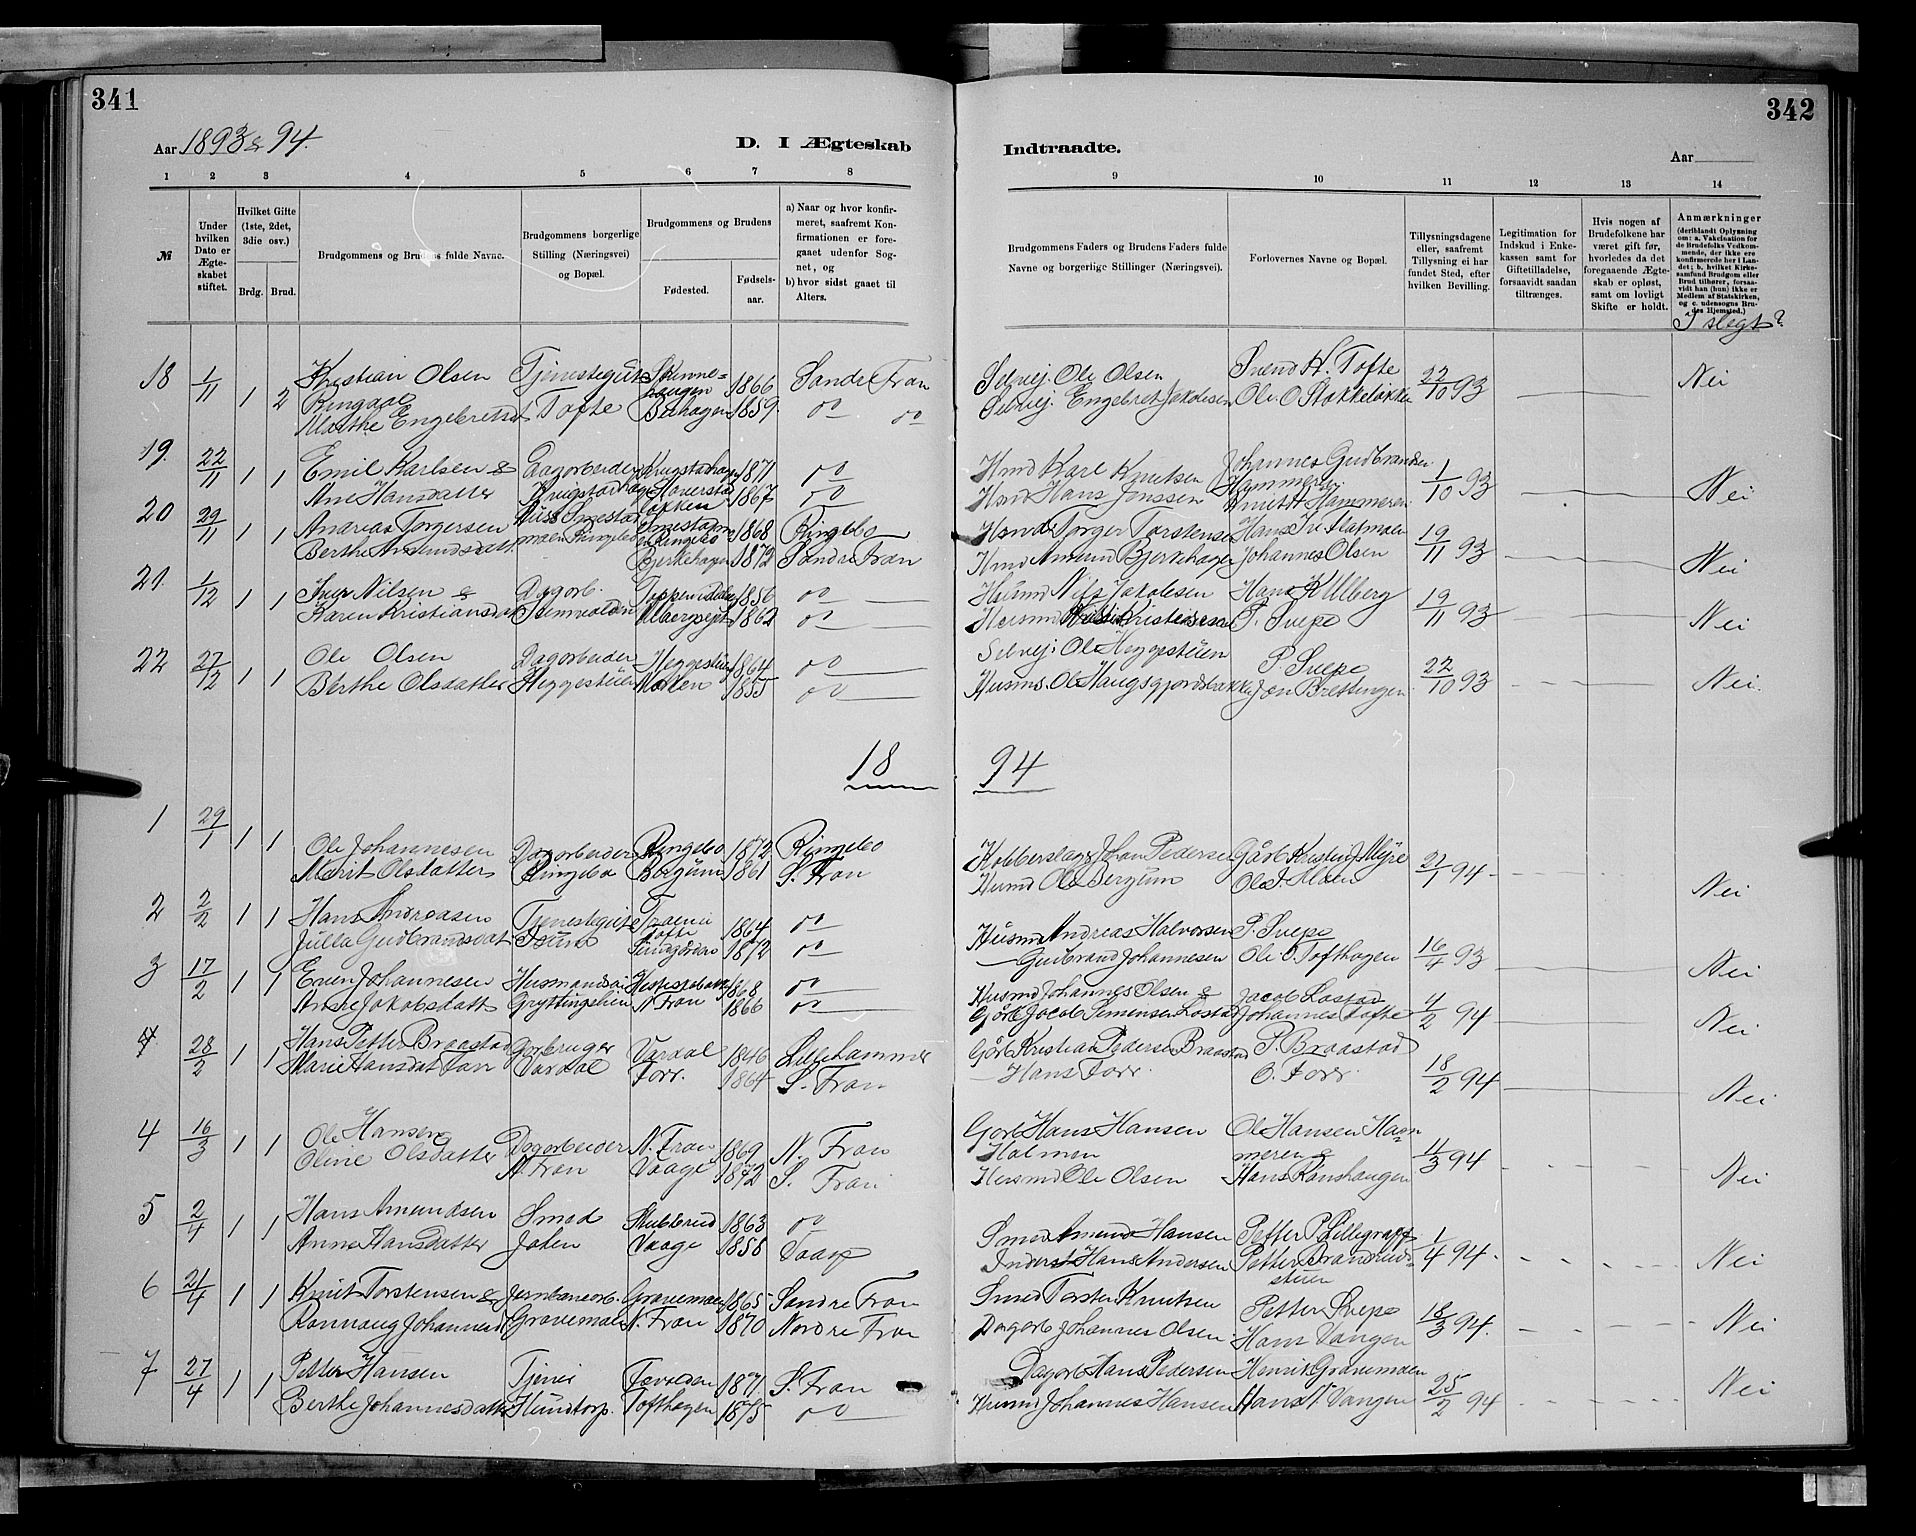 341
Aar 1893 & 94.
D. I Ægteskab
1 2 3 4 5 6 7 8
№
Under hvilken Dato er Ægteskabet stiftet.
Hvilket Gifte (1ste, 2det, 3die osv.)
Brdg. Brud.
Brudgommens og Brudens fulde Navne.
Brudgommens borgerlige Stilling (Næringsvei) og Bopæl.
Brudgommens og Brudens
Fødested.
Fødselsaar.
a) Naar og hvor konfirmeret, saafremt Konfirmationen er foregaaet udenfor Sognet, og
b) hvor sidst gaaet til Alters.
18 1/11 1 2 Kristian Olsen Tjenestegut 1866 Søndre Fron
Ringaae
Marthe Engebretsd Tofte Bæhagen 1859. do do
19. 22/11 1 1 Emil Karlsen & Dagarbeider Krugstadhage 1871 do
Ane Hansdatter Krugstadhage 1867 do
20 29/11 1 1 Andreas Torgersen 1868 Ringebo
Berthe Amundsdatt Bjerkehagen 1872 Søndre Fron
21. 1/12 1 1 Iver Nilsen & Dagarb. 1856 do
Karen Kristiansdat 1862 do
22 27/12 1 1 Ole Olsen Dagarbeider Heggestuen 1864 do
Berthe Olsdatter Heggestuen 1855 do
18
1 29/1 1 1
Ole Johannesen Dagarbeider Ringebo 1872 Ringebo
Marit Olsdatter Ringebo Bergum 1861 S. Fron
2 2/2 1 1 Hans Andreasen Tjenestegut 1864 do
Julla Gudbrandsdat 1872 do
3 17/2 1 1 Even Johannesen Husmandsøn 1868 do
Anne Jakobsdatt Gryttingslien N. Fron 1866 do
4 28/2 1 1 Hans Petter Braastad Gårbruger Vardal 1846 Lillehammer
Marie Hansdat Forr Vardal Forr. 1864 S. Fron
4 16/3 1 1 Ole Hansen & Dagarbeider N. Fron 1869 N. Fron
Oline Olsdatter N. Fron Vaage 1872 S. Fron
5 2/4 1 1 Hans Amundsen Smed Skubberud 1863 do
Anne Hansdatter Joten Vaage 1858 Vaage
6 21/4 1 1 Knut Torstensen & Jernbanearb. Gravemoen 1865 Søndre Fron
Rønnaug Johannesd Gravemoen N. Fron 1870 Nordre Fron
7 27/4 1 1 Petter Hansen Tjener 1871 S. Fron
Berthe Johannesdatter Hundtorp. Tofthagen 1875 do
342
Indtraadte.
Aar
9 10 11 12 13 14
Brudgommens Faders og Brudens Faders fulde Navne og borgerlige Stillinger (Næringsvei).
Forlovernes Navne og Bopæl.
Tillysningsdagene eller, saafremt Tillysning ei har fundet Sted, efter hvilken Bevilling.
Legitimation for Indskud i Enkekassen samt for Giftetilladelse, forsaavidt saadan tiltrænges.
Hvis nogen af Brudefolkene har været gift før, hvorledes da det foregaaende Ægteskab er opløst, samt om lovligt Skifte er holdt.
Anmærkninger (deriblandt Oplysning om: a. Vakcination for de Brudefolks Vedkommende, der ikke ere konfirmerede her i Landet; b. hvilket Kirkesamfund Brudgom eller Brud tilhører, forsaavidt han (hun) ikke er Medlem af Statskirken, og c. udensogns Brudes Hjemsted.)
I slegt?
Selvej. Ole Olsen Svend H. Tofte 22/10 93 Nei
Selvej. Engebret Jakobsen Ole O Stokkeløkken
Hmd Karl Knutsen Johannes Gudbrandsen 1/10 93 Nei
Hammeren
Hsmd Hans Jenssen Knut H Hammeren.
Hsmd Torger Torstensen 19/11 93 Nei
Hmd Amund Bjerkehagen Johannes Olsen
Husmd Nils Jakobsen Hans K Ulberg 19/11 93 Nei
Husmd P. Svepe
Selvej: Ole Heggestuen P. Svepe 22/10 93 Nei.
Husms. Ole Haugsgjordsbakke Jon Brettingen
94
Kobberslag. Johan Pedersen Gårb Kristen J Myre 21/1 94 Nei
Husmd Ole Bergum
Husmd Andreas Halvorsen P. Svepe 16/4 93 Nei
— Gudbrand Johannesen Ole O. Tofthagen
Husmd Johannes Olsen & Jacob Lostad 4/2 94 Nei
Gårb Jacob Simensen Lostad Johannes Tofte
Gårb Kristian Pedersen Braastad P. Braastad 18/2 94 Nei
— Hans Forr. O. Forr.
Gårb Hans Hansen Ole Hansen Ham
Holmen meren & 11/3 94 Nei
Husmd Ole Olsen Hans Rønshaugen
Smed Amund Hansen Petter P Lillegraff 1/4 94. Nei
Inderst Hans Andersen Petter Brandrud
stuen
Smed Torsten Knutsen Petter Svepe 18/3 94. Nei
Dagarb Johannes Olsen Hans Vangen
Dagarb Hans Pedersen Henrik Gravemoen 25/2 94 Nei
Husmd Johannes Hansen Hans N. Vangen